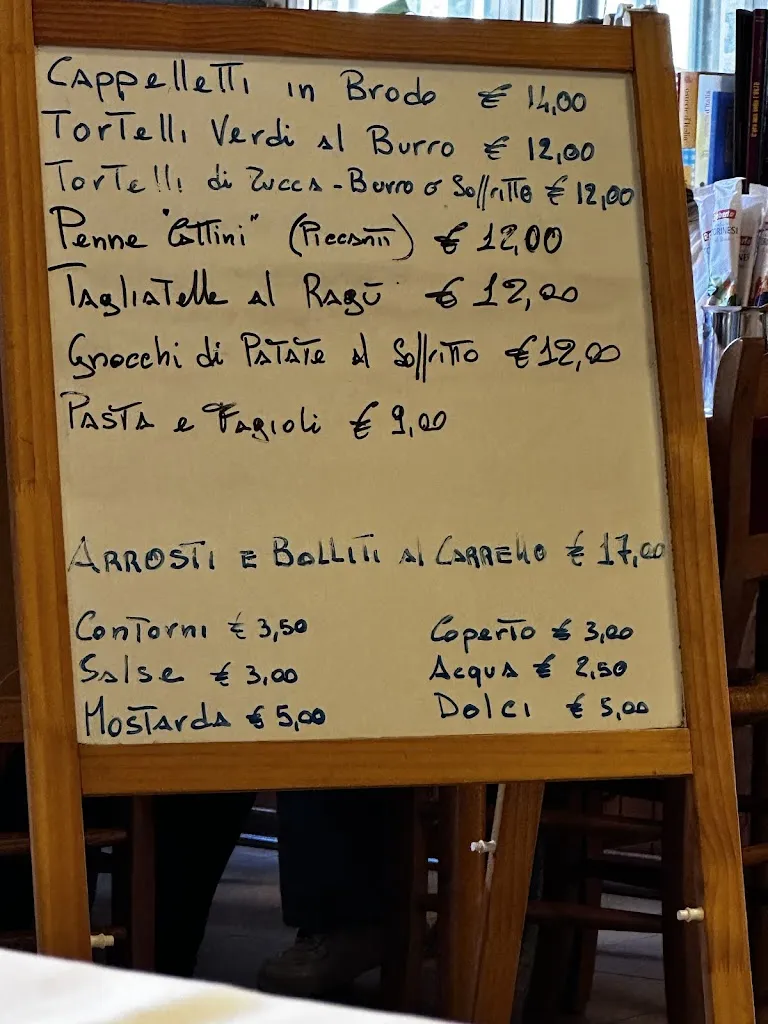 Cappelletti in Brodo € 14,00
Tortelli Verdi al Burro € 12,00
Tortelli di Zucca - Burro o Soffritto € 12,00
Penne "Cottini" (Piccanti) € 12,00
Tagliatelle al Ragù € 12,00
Gnocchi di Patate al Soffritto € 12,00
Pasta e Fagioli € 9,00
ARROSTI E BOLLITI al CARRELLO € 17,00
Contorni € 3,50
Salse € 3,00
Mostarda € 5,00
Coperto € 3,00
Acqua € 2,50
Dolci € 5,00